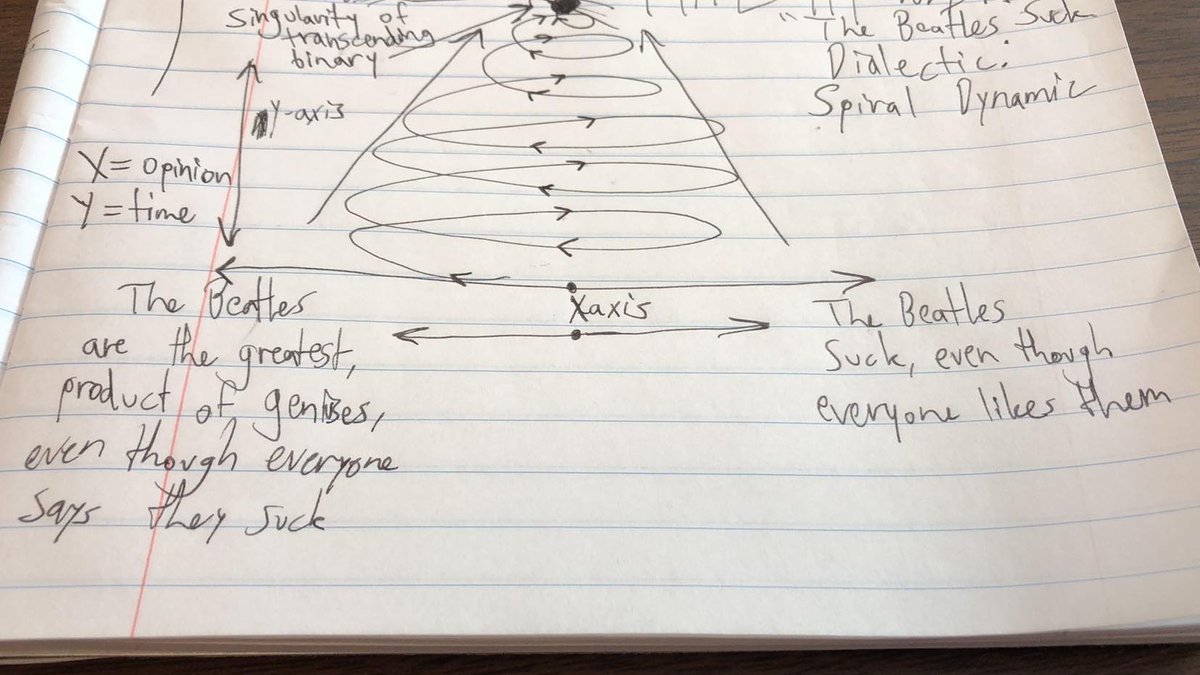 Singularity of
transcending
binary
y-axis
X = opinion
Y = time
"The Beatles Suck
Dialectic:
Spiral Dynamic
X axis
The Beatles
are the greatest,
product of geniuses,
even though everyone
says they suck
The Beatles
Suck, even though
everyone likes them